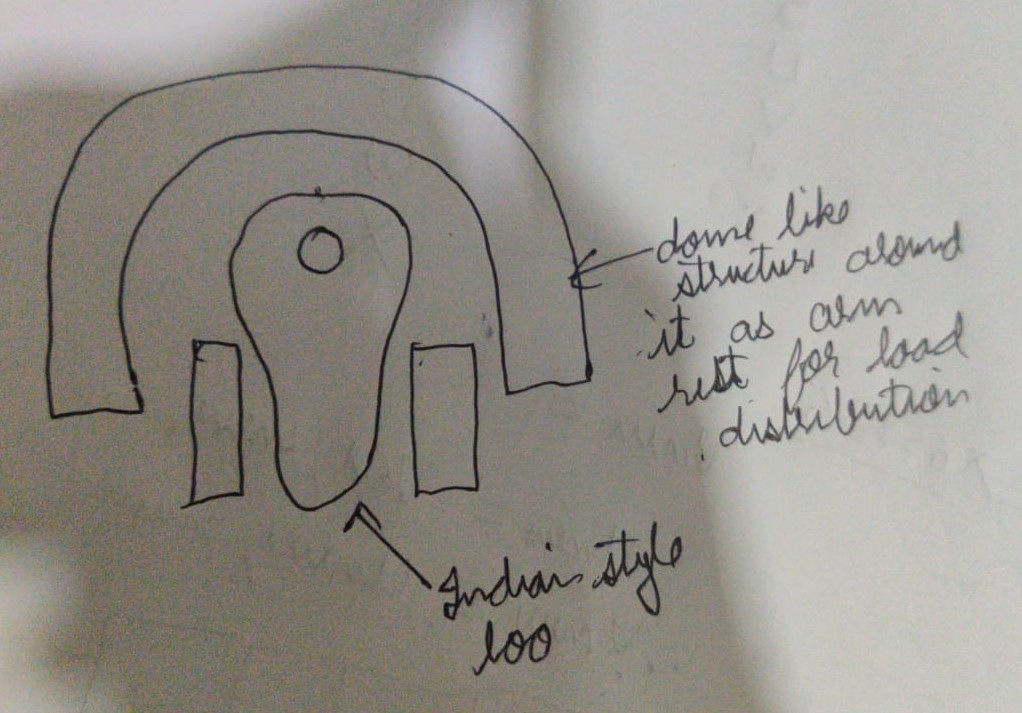 dome like
structure around
it as arm
rest for load
distribution
Indian style
loo